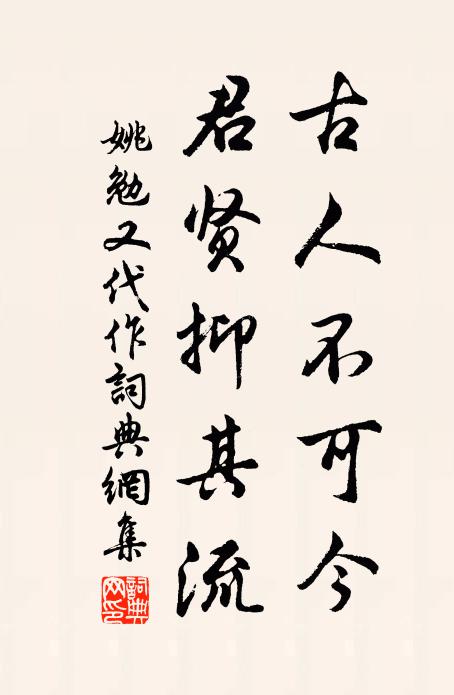 古人不可今
君贤抑其流
姚勉又代作詞典網集
詞典
网印